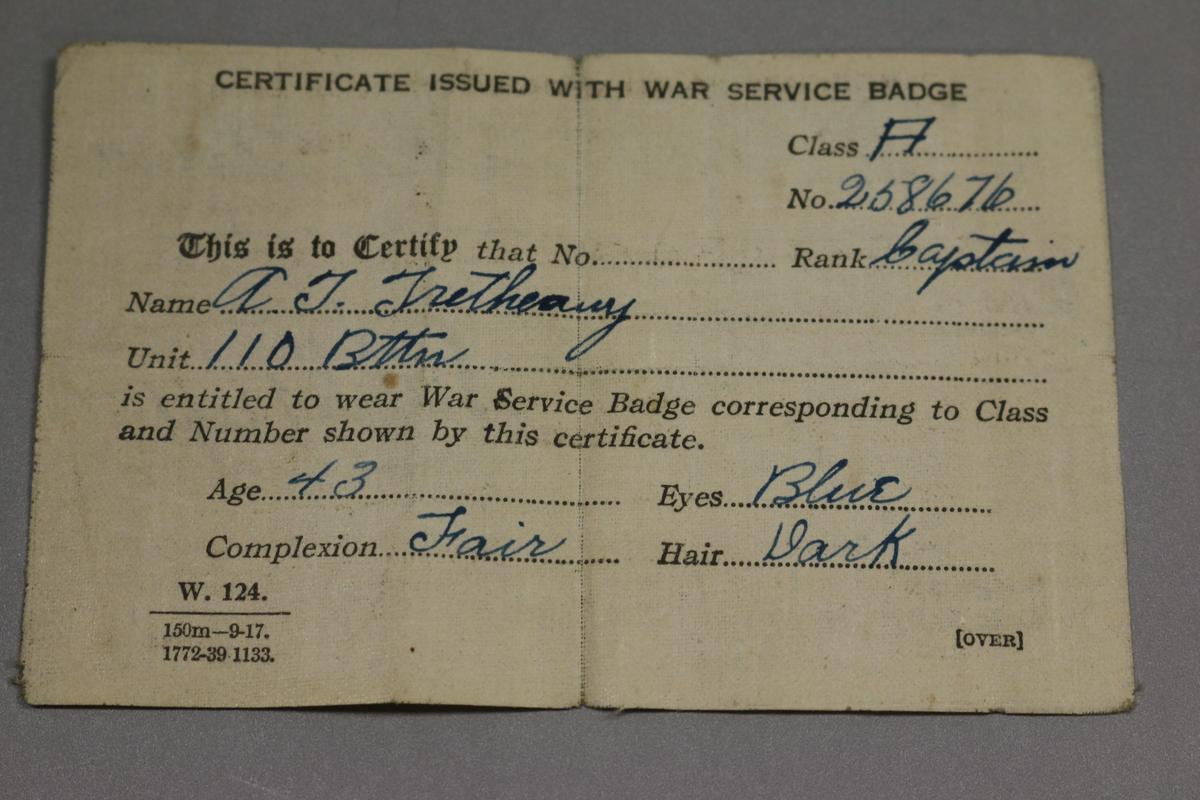 CERTIFICATE ISSUED WITH WAR SERVICE BADGE
Class A
No. 258676
This is to Certify that No. Rank Captain
Name A. T. Tretheawy
Unit 110 Bttn
is entitled to wear War Service Badge corresponding to Class
and Number shown by this certificate.
Age 43 Eyes Blue
Complexion Fair Hair Dark
W. 124.
150m—9-17.
1772-39 1133.
[OVER]